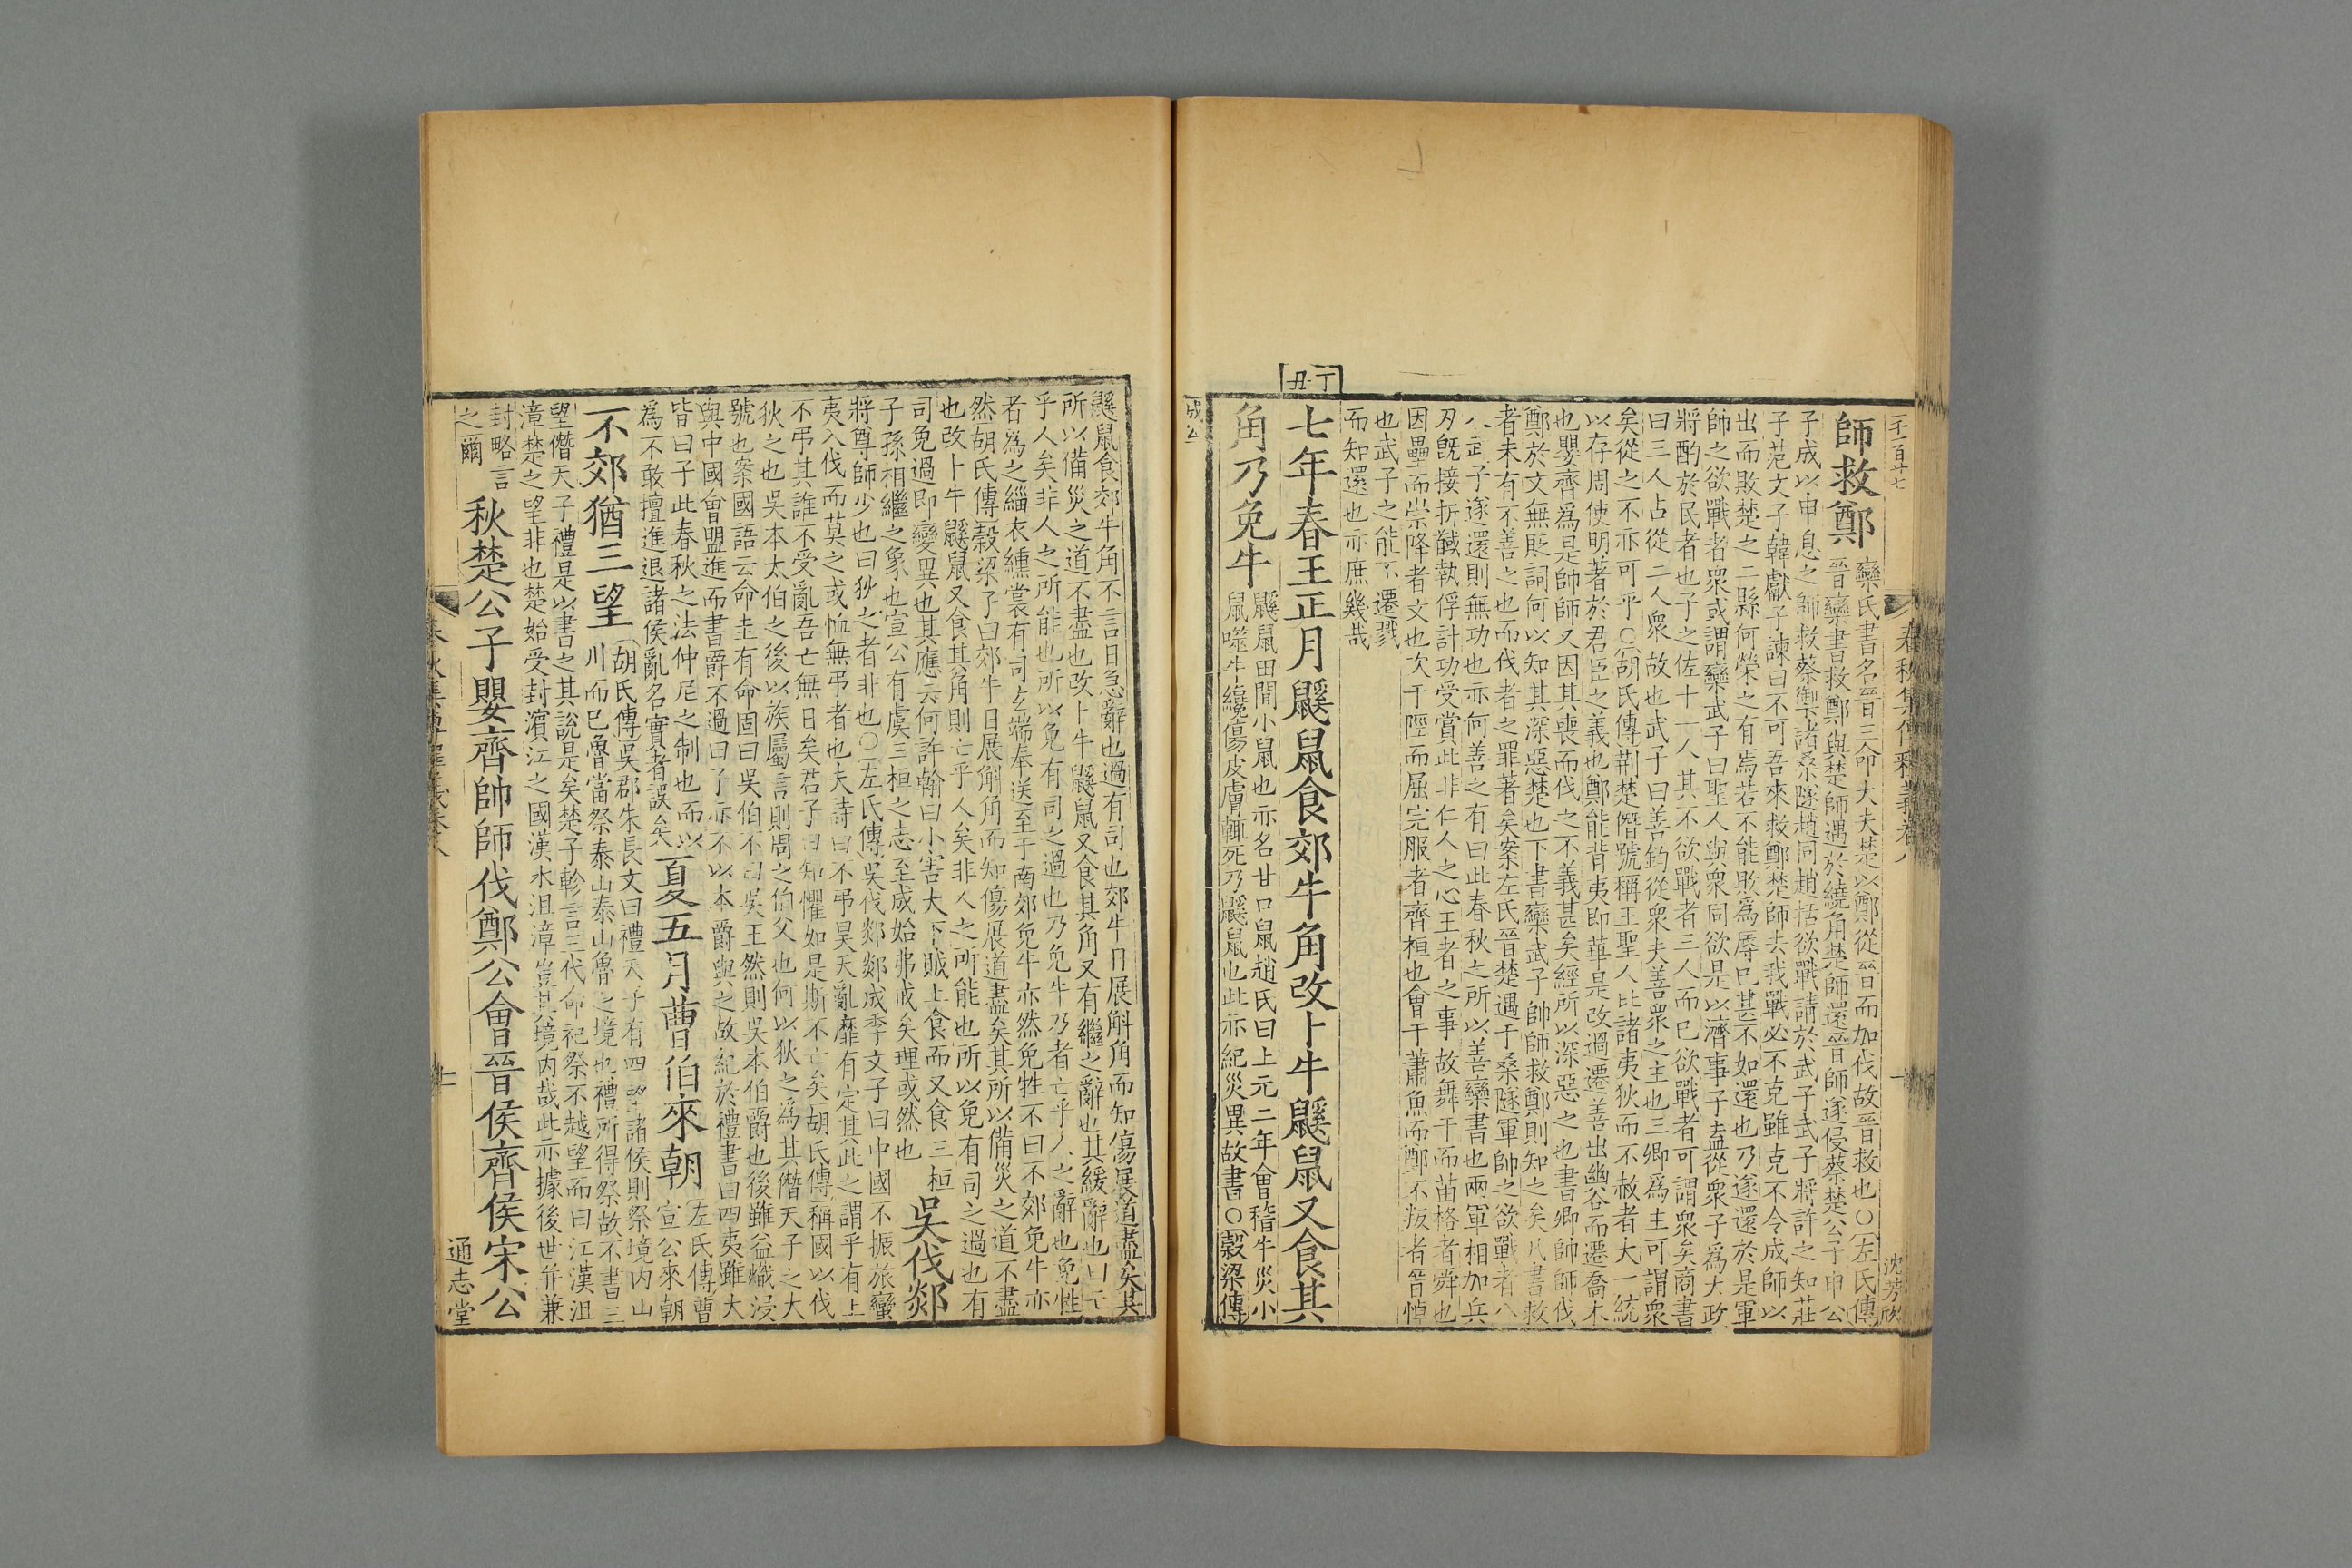 師救鄭
欒氏書名晉三命大夫楚以鄭從晉而加伐故晉救也○左氏傳
晉欒書救鄭與楚師遇於繞角楚師還晉師遂侵蔡楚公子申公
子成以申息之師救蔡禦諸桑隧趙同趙括欲戰請於武子武子將許之知莊
子范文子韓獻子諫曰不可吾來救鄭楚師去我戰必不克雖克不令成師以
出而敗楚之二縣何榮之有焉若不能敗為辱已甚不如還也乃遂還於是軍
師之欲戰者衆或謂欒武子曰聖人與衆同欲是以濟事子盍從衆子為大政
將酌於民者也子之佐十一人其不欲戰者三人而已欲戰者可謂衆矣商書
曰三人占從二人衆故也武子曰善鈞從衆夫善衆之主也三卿為主可謂衆
矣從之不亦可乎○胡氏傳荆楚僭號稱王聖人比諸夷狄而不赦者大一統
以存周使明著於君臣之義也鄭能背夷即華是改過遷善出幽谷而遷喬木
也嬰齊為是帥師又因其喪而伐之不義甚矣經所以深惡之也書卿帥師伐
鄭於文無貶詞何以知其深惡楚也下書欒武子帥師救鄭則知之矣凡書救
者未有不善之也而伐者之罪著矣案左氏晉楚遇于桑隧軍帥之欲戰者八
人武子遂還則無功也亦何善之有曰此春秋之所以善欒書也兩軍相加兵
刃旣接折馘執俘計功受賞此非仁人之心王者之事故舞干而苗格者舜也
因壘而崇降者文也次于陘而屈完服者齊桓也會于蕭魚而鄭不叛者晉悼
也武子之能不遷戮
而知還也亦庶幾哉
丁丑
七年春王正月鼷鼠食郊牛角改卜牛鼷鼠又食其
角乃免牛
鼷鼠田間小鼠也亦名甘口鼠趙氏曰上元二年會稽牛災小
鼠噬牛纔傷皮膚輒死乃鼷鼠也此亦紀災異故書○榖梁傳
成公
鼷鼠食郊牛角不言日急辭也過有司也郊牛日展斛角而知傷展道盡矣其
所以備災之道不盡也改卜牛鼷鼠又食其角又有繼之辭也其緩辭也曰亡
乎人矣非人之所能也所以免有司之過也乃免牛乃者亡乎人之辭也免牲
者為之緇衣纁裳有司玄端奉送至于南郊免牛亦然免牲不曰不郊免牛亦
然胡氏傳榖梁子曰郊牛日展斛角而知傷展道盡矣其所以備災之道不盡
也改卜牛鼷鼠又食其角則亡乎人矣非人之所能也所以免有司之過也有
司免過即變異也其應云何許翰曰小害大下賊上食而又食三桓
子孫相繼之象也宣公有虞三桓之志至成始弗戒矣理或然也
吳伐郯
將尊師少也曰狄之者非也○左氏傳吳伐郯郯成季文子曰中國不振旅蠻
夷入伐而莫之或恤無弔者也夫詩曰不弔昊天亂靡有定其此之謂乎有上
不弔其誰不受亂吾亡無日矣君子曰知懼如是斯不亡矣胡氏傳稱國以伐
狄之也吳本太伯之後以族屬言則周之伯父也何以狄之為其僭天子之大
號也案國語云命圭有命固曰吳伯不曰吳王然則吳本伯爵也後雖益熾浸
與中國會盟進而書爵不過曰子亦不以本爵與之故紀於禮書曰四夷雖大
皆曰子此春秋之法仲尼之制也而以
為不敢擅進退諸侯亂名實者誤矣
夏五月曹伯來朝
左氏傳曹
宣公來朝
不郊猶三望
胡氏傳吳郡朱長文曰禮天子有四望諸侯則祭境内山
川而已魯當祭泰山泰山魯之境也禮所得祭故不書三
望僭天子禮是以書之其説是矣楚子軫言三代命祀祭不越望而曰江漢沮
漳楚之望非也楚始受封濱江之國漢水沮漳豈其境内哉此亦據後世并兼
封略言
之爾
秋楚公子嬰齊帥師伐鄭公會晉侯齊侯宋公
通志堂